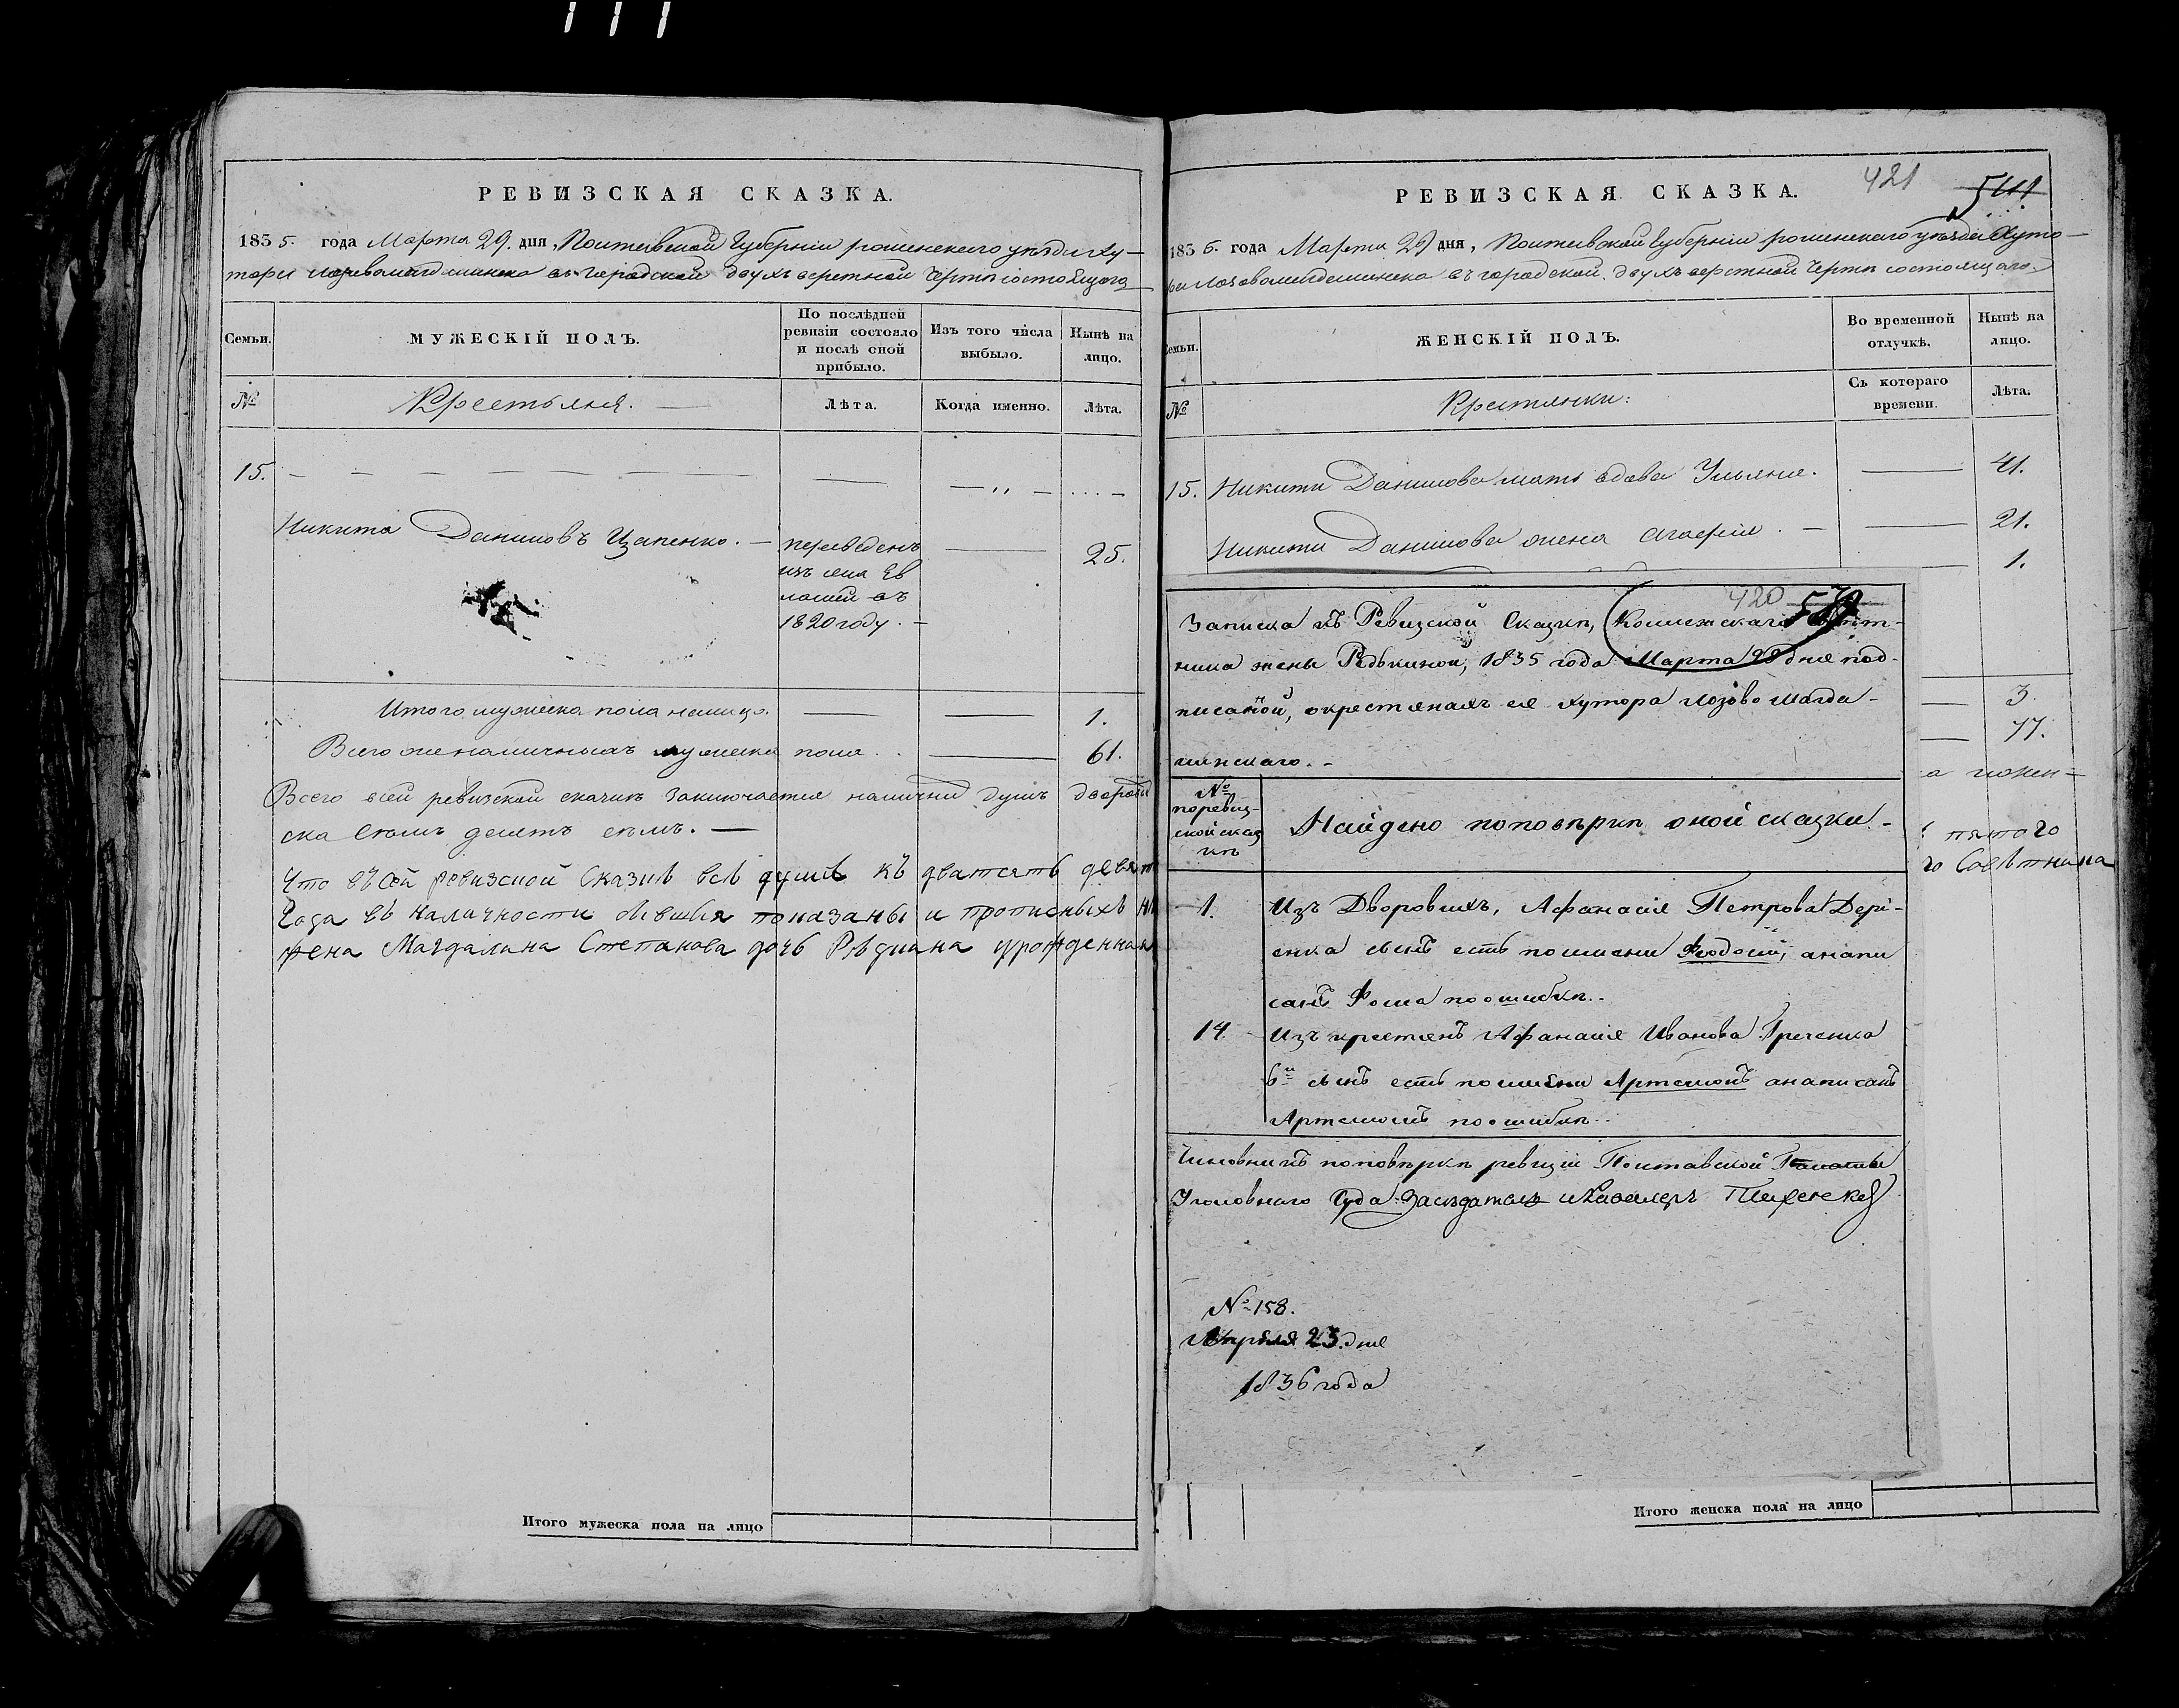 РЕВИЗСКАЯ СКАЗКА.
1835. года Марта 29. дня, Полтавской Губерніи роменского уѣзда ху-
тора лозовомагдалинска въ городской двухъ верстной Чертѣ состоящаго
Семьи.
МУЖЕСКІЙ ПОЛЪ.
По послѣдней
ревизіи состояло
и послѣ оной
прибыло.
Изъ того числа
выбыло.
Нынѣ на
лицо.
№
Крестьяня.
Лѣта.
Когда именно.
Лѣта.
15.
Никита Даниловъ Цапенко.
переведенъ
изъ села Ев
лашей въ
1820 году.
25.
Итого мужеска пола налицо. 1.
Всего же наличныхъ мужеска пола. 61.
Всего всей ревизской сказкѣ заключается налични душъ
ска семь десятъ семь.
Что въ сей ревизской Сказкѣ всѣ души къ дватсять девят
Года въ наличности бывшия показаны и прописныхъ
жена Магдалина Степанова дочь Рѣдкина урожденная
Итого мужеска пола на лицо
421
РЕВИЗСКАЯ СКАЗКА.
1835. года Марта 29 дня, Полтавской Губерніи роменского уѣзда Хуто-
ра лозовомагдалинска въ городской двухъ верстной Чертѣ состоящаго.
Семьи.
ЖЕНСКІЙ ПОЛЪ.
Во временной
отлучкѣ.
Нынѣ на
лицо.
№
Крестянки:
Съ котораго
времени.
Лѣта.
15. Никити Данилова мать вдова Ульяна. 41.
Никити Данилова жена Агафия. 21.
1.
3.
77.
пятого
го Совѣтника
420
Записка къ Ревизской Сказкѣ, Коллежскаго Совѣт-
ника жены Редькиной, 1835 года Марта 29 дня под-
писаной, окрестянахъ ея хутора Лозово Магда-
линскаго.
№
поревиз-
ской сказ
кѣ
Найдено поповѣркѣ оной сказки.
1. Изъ Дворовыхъ, Афанасія Петрова
енка сынъ есть поимени Феодосій, анапи
санъ Фома поошибкѣ.
14. Изъ крестянъ Афанасія Иванова Греченка
6й сынъ есть поимени Артемонъ анаписанъ
Артемомъ поошибкѣ.
Чиновникъ поповѣркѣ ревизіи Полтавской Палаты
Уголовнаго Суда Засѣдатель и Кавалеръ
№ 158.
Апрѣля 23. дня
1836 года
Итого женска пола на лицо